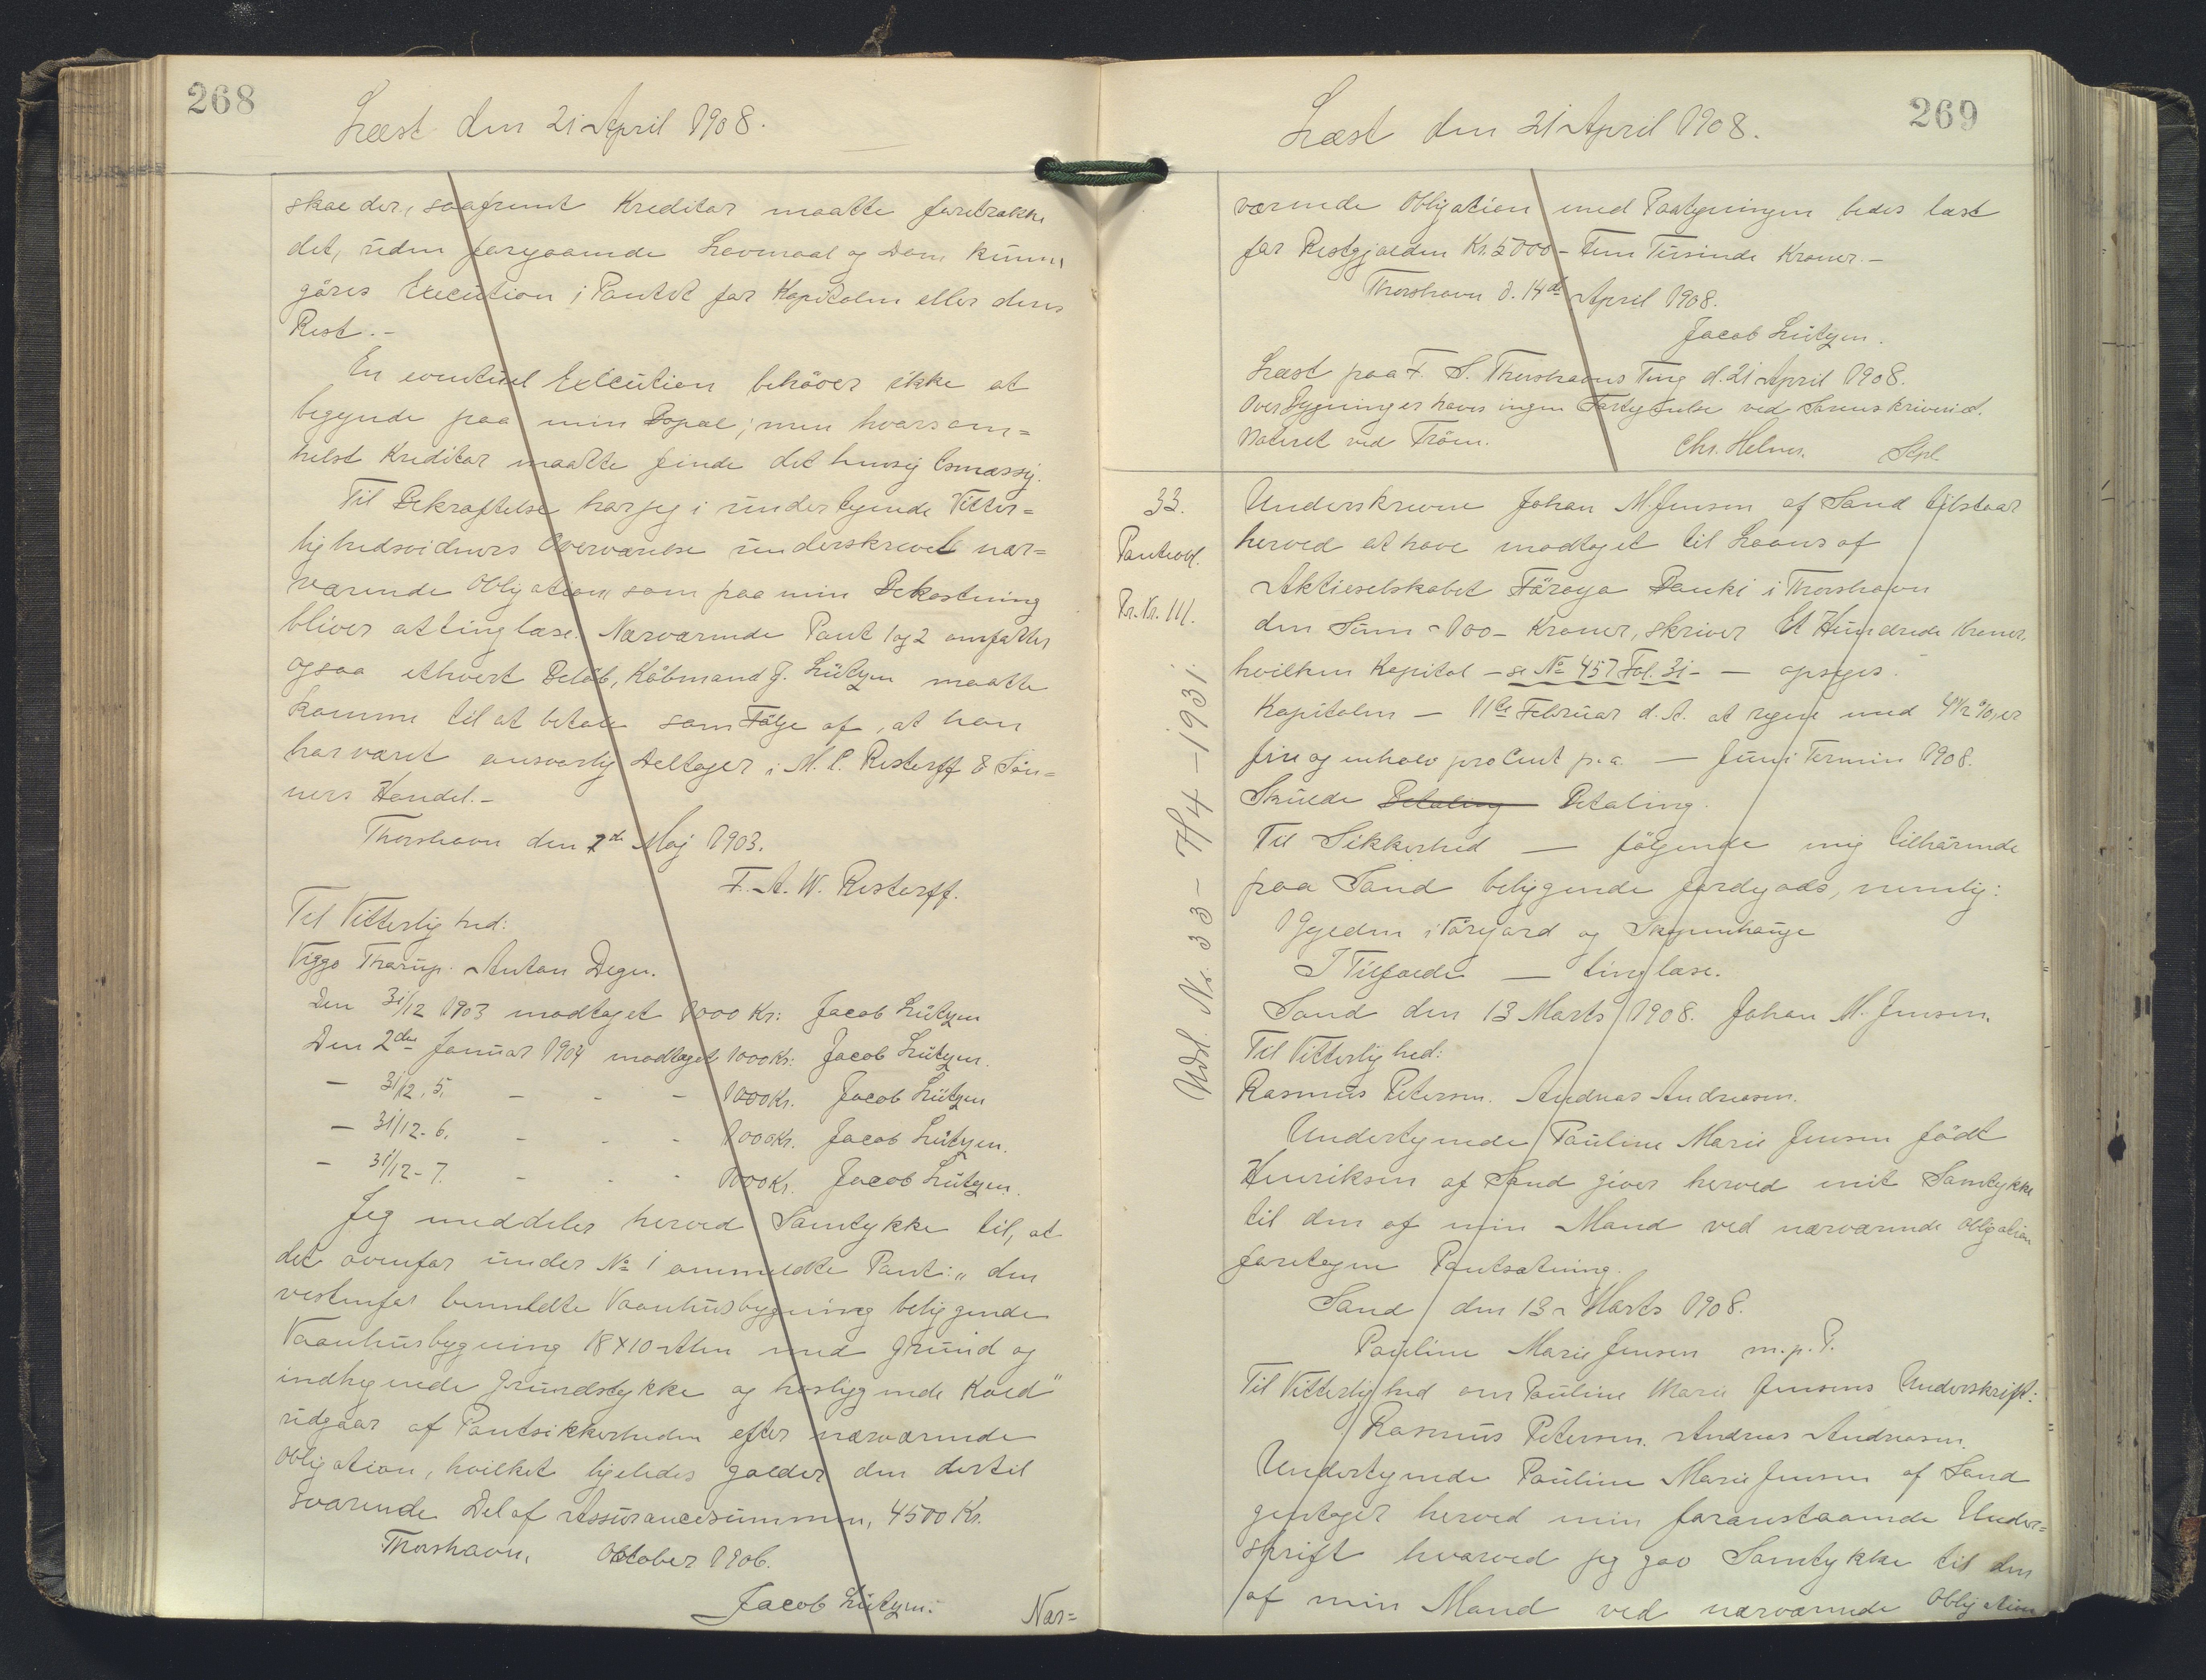 268
Læst den 21 April 1908.
skaedes, saafremt Kreditor maatte foretrække
det, uden foregaaende Lovmaal og Dom kunne
göres Execution i Pantet for Kapitalen eller dens
Rest.-
En eventuel Execution behöver ikke at
begynde paa min Bopæl; men hvorsom=
helst Kreditor maatte finde det hensigtsmæssig.
Til Bekræftelse har jeg i undertegnede Vitter=
lighedsvidners Overværelse underskrevet nær=
værende Obligation, som paa min Bekostning
bliver at tinglæse. Nærværende Pant 1 og 2 omfatter
ogsaa ethvert Beløb, Köbmand J. Lützen maatte
komme til at betale som Fölge af, at han
har været ansvarlig Deltager i M. C. Restorff & Søn=
ners Handel.-
Thorshavn den 7de Maj 1903.
F. A. W. Restorff.
Til Vitterlighed:
Viggo Thorup. Anton Degn.
Den 31/12 1903 modtaget 1000 Kr: Jacob Lützen
Den 2den Januar 1904 modtaget 1000 Kr: Jacob Lützen.
- 31/12. 5. - - - 1000 Kr. Jacob Lützen
- 31/12 - 6. - - - 1000 Kr. Jacob Lützen.
- 31/12 - 7. - - - 1000 Kr. Jacob Lützen.
Jeg meddeler herved Samtykke til, at
det ovenfor under No 1 ommeldte Pant: "den
vestenfor benmeldte Vaanhusbygning beliggende
Vaanhusbygning 18 x 10 Alen med Grund og
indhegnede Grundstykke og hosliggende Kold"
udgaar af Pantsikkerheden efter nærværende
Obligation, hvilket ligeledes gælder den dertil
svarende Del af Assurancesummen, 4500 Kr.
Thorshavn, Oktober 1906.
Jacob Lützen.
Nær=
269
Læst den 21 April 1908.
værende Obligation med Paategningen bedes læst
for Restgjælden Kr. 5000 - Fem Tusinde Kroner.-
Thorshavn d. 14de April 1908.
Jacob Lützen.
Læst paa F. S. Thorshavns Ting d. 21 April 1908.
Over Bygninger haves ingen Fortegnelse ved Sorenskriveriet.
Noteret ved Fröen.
Chr. Helmer. Stpl.
33.
Panteobl.
Pr. Kr. 111.
Udsl. Nr. 33 - 7/4 - 1931.
Underskrevne Johan M. Jensen af Sand tilstaar
herved at have modtaget til Laans af
Aktieselskabet Föroya Banki i Thorshavn
den Sum - 100 - Kroner, skriver Et Hundrede Kroner,
hvilken Kapital - se No 457 Fol. 31 - - opsiges.
Kapitalen - 11te Februar d. A. at regne med 4 1/2 %, er
fire og enhalv pro Cent p. a. - Juni Termin 1908.
Skulde Betaling Betaling.
Til Sikkerhed - følgende mig tilhørende
paa Sand beliggende Jordgods, nemlig:
1 Gylden i og
I Tilfælde - tinglæse.
Sand den 13 Marts 1908. Johan M. Jensen.
Til Vitterlighed:
Rasmus Petersen. Andreas Andreasen.
Undertegnede Pauline Marie Jensen födt
Henriksen af Sand giver herved mit Samtykke
til den af min Mand ved nærværende Obligation
foretagne Pantsætning.
Sand den 13 Marts 1908.
Pauline Marie Jensen m. p. P.
Til Vitterlighed om Pauline Marie Jensens Underskrift:
Rasmus Petersen. Andreas Andreasen.
Undertegnede Pauline Marie Jensen af Sand
gentager herved min foranstaaende Under=
skrift hvorved jeg gav Samtykke til den
af min Mand ved nærværende Obligation